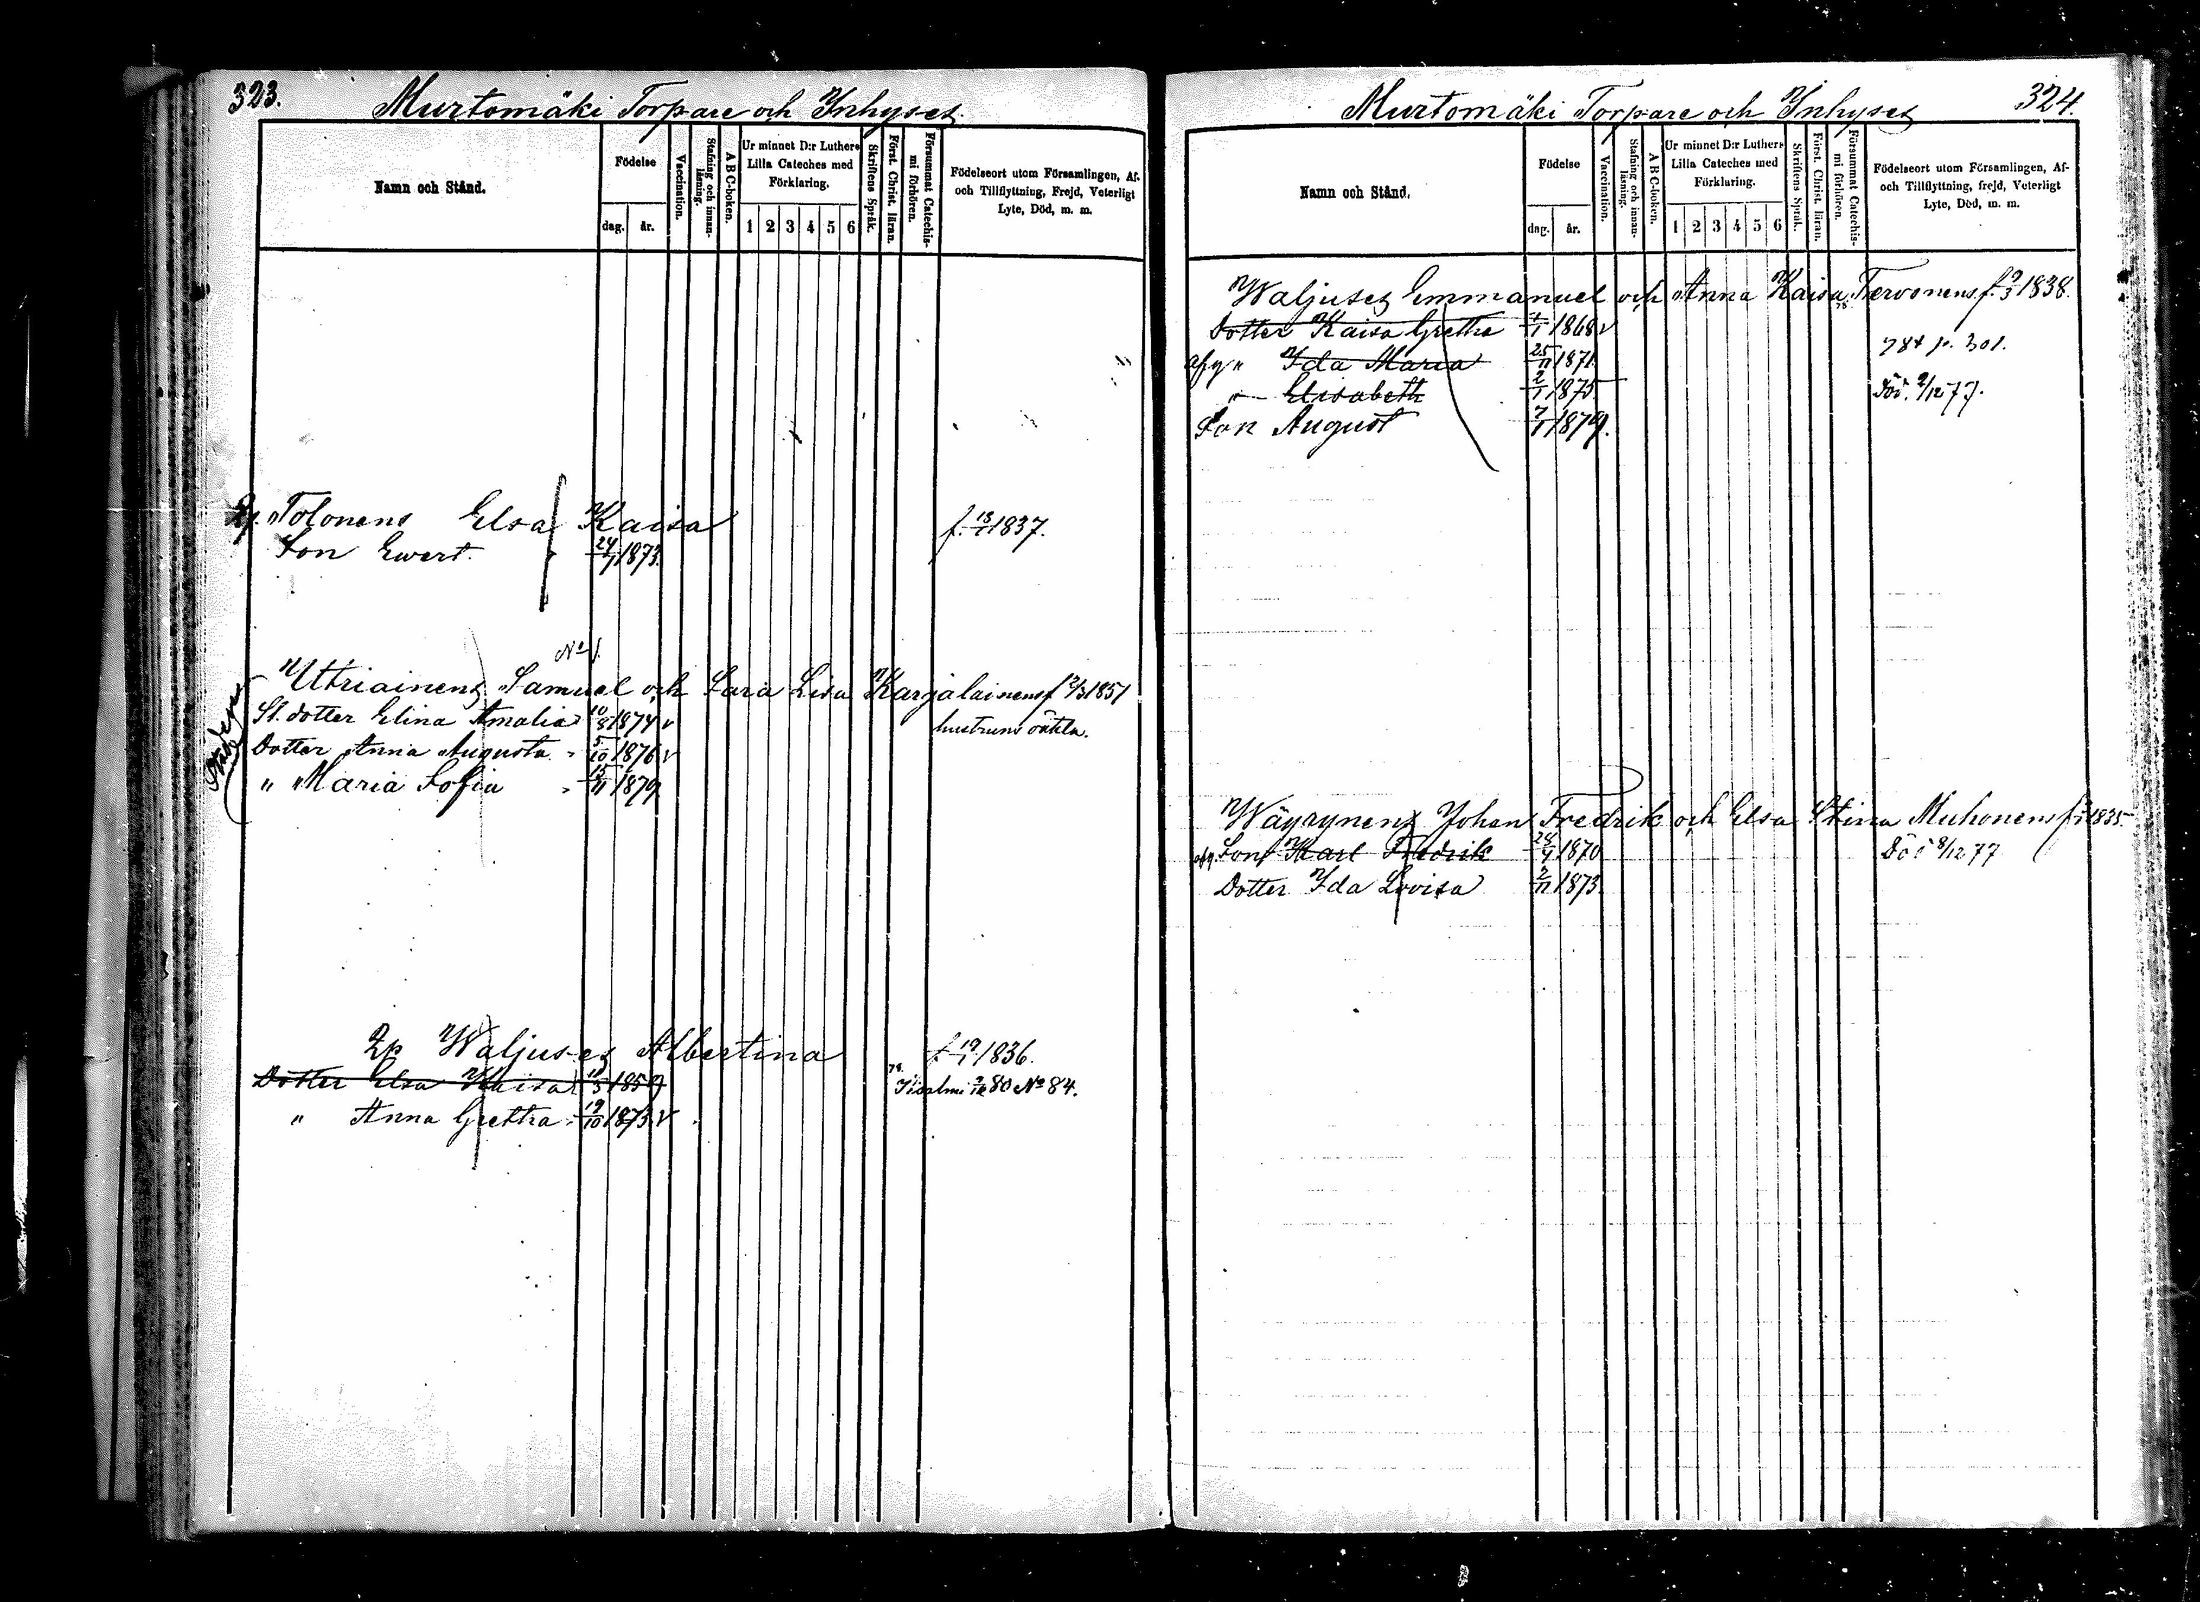 323.
Murtomäki Torpare och Inhyses
Namn och Stånd.
Födelse
dag.
år.
Vaccination.
Stafning och innanläsning.
A B C-boken.
Ur minnet D:r Luthers
Lilla Cateches med
Förklaring.
1 2 3 4 5 6
Skriftens Språk.
Först. Christ. läran.
Försummat Catechismi förhören.
Födelseort utom Församlingen, Af-
och Tillflyttning, Frejd, Veterligt
Lyte, Död, m. m.
Tolonens Elsa Kaisa f. 13/11 1837.
Son Ewert 24/1 1873.
No 1.
Utriainens Samuel och Sara Lisa Karjalainens f 1851
St. dotter Elina Amalia 10/8 1874 v hustruns oäkta.
Dotter Anna Augusta 5/10 1876 v
" Maria Sofia 15/11 1879
Waljuses Albertina f 19/1 1836.
Dotter Elsa Kaisa 1859 80 No 84.
" Anna Gretha 19/10 1873 v
324.
Murtomäki Torpare och Inhyses
Namn och Stånd.
Födelse
dag.
år.
Vaccination.
Stafning och innanläsning.
A B C-boken.
Ur minnet D:r Luthers
Lilla Cateches med
Förklaring.
1 2 3 4 5 6
Skriftens Språk.
Först. Christ. läran.
Försummat Catechismi förhören.
Födelseort utom Församlingen, Af-
och Tillflyttning, frejd, Veterligt
Lyte, Död, m. m.
Waljuses Emmanuel och Anna Kaisa Tervonens f. 9/3 1838.
Dotter Kaisa Gretha 1/1 1868 v
" Ida Maria 25/11 1871 p. 301.
" Elisabeth 2/1 1875 Död 9/12 77.
Son August 7/1 1879.
Wäyrynens Johan Fredrik och Elsa Stina Muhonens f 1835
Son Karl Fredrik 24/4 1870 Död 8/12 77
Dotter Ida Lovisa 2/11 1873